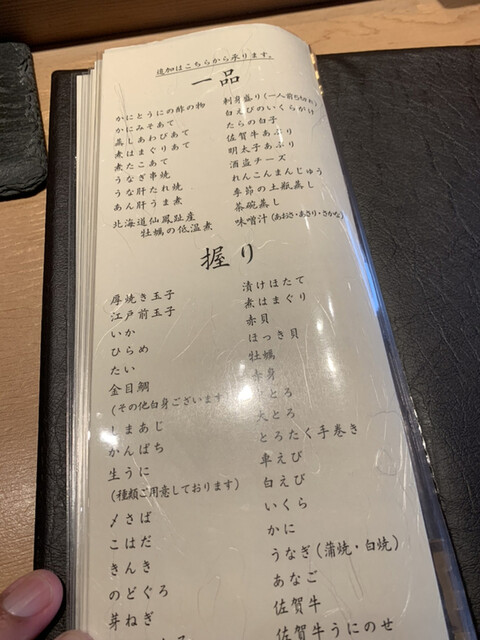 追加はこちらから承ります。
一品
かにとうにの酢の物
かにみそあて
蒸しあわびあて
煮はまぐりあて
煮たこあて
うなぎ串焼
うな肝たれ焼
あん肝うま煮
北海道仙鳳趾産
牡蠣の低温煮
刺身盛り(一人前5切れ)
白えびのいくらがけ
たらの白子
佐賀牛あぶり
明太子あぶり
酒盗チーズ
れんこんまんじゅう
季節の土瓶蒸し
茶碗蒸し
味噌汁(あおさ・あさり・さかな)
握り
厚焼き玉子
江戸前玉子
いか
ひらめ
たい
金目鯛
(その他白身ございます
しまあじ
かんぱち
生うに
(種類ご用意しております)
〆さば
こはだ
きんき
のどぐろ
芽ねぎ
漬けほたて
煮はまぐり
赤貝
ほっき貝
牡蠣
赤身
とろ
大とろ
とろたく手巻き
車えび
白えび
いくら
かに
うなぎ(蒲焼・白焼)
あなご
佐賀牛
佐賀牛うにのせ